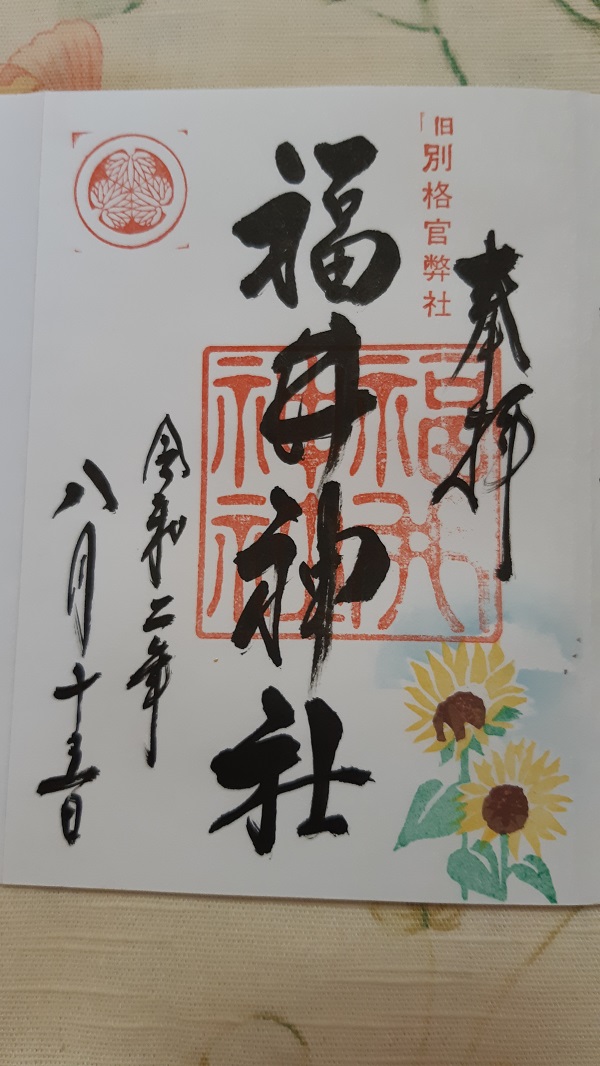 奉拝
「旧別格官弊社
福井神社
福井
神社
令和二年
八月十五日